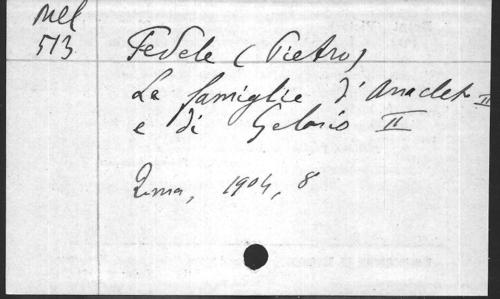 Mel
513
Fedele (Pietro)
Le famiglie d'Anacleto II
e di Gelasio II
Roma, 1904, 8°